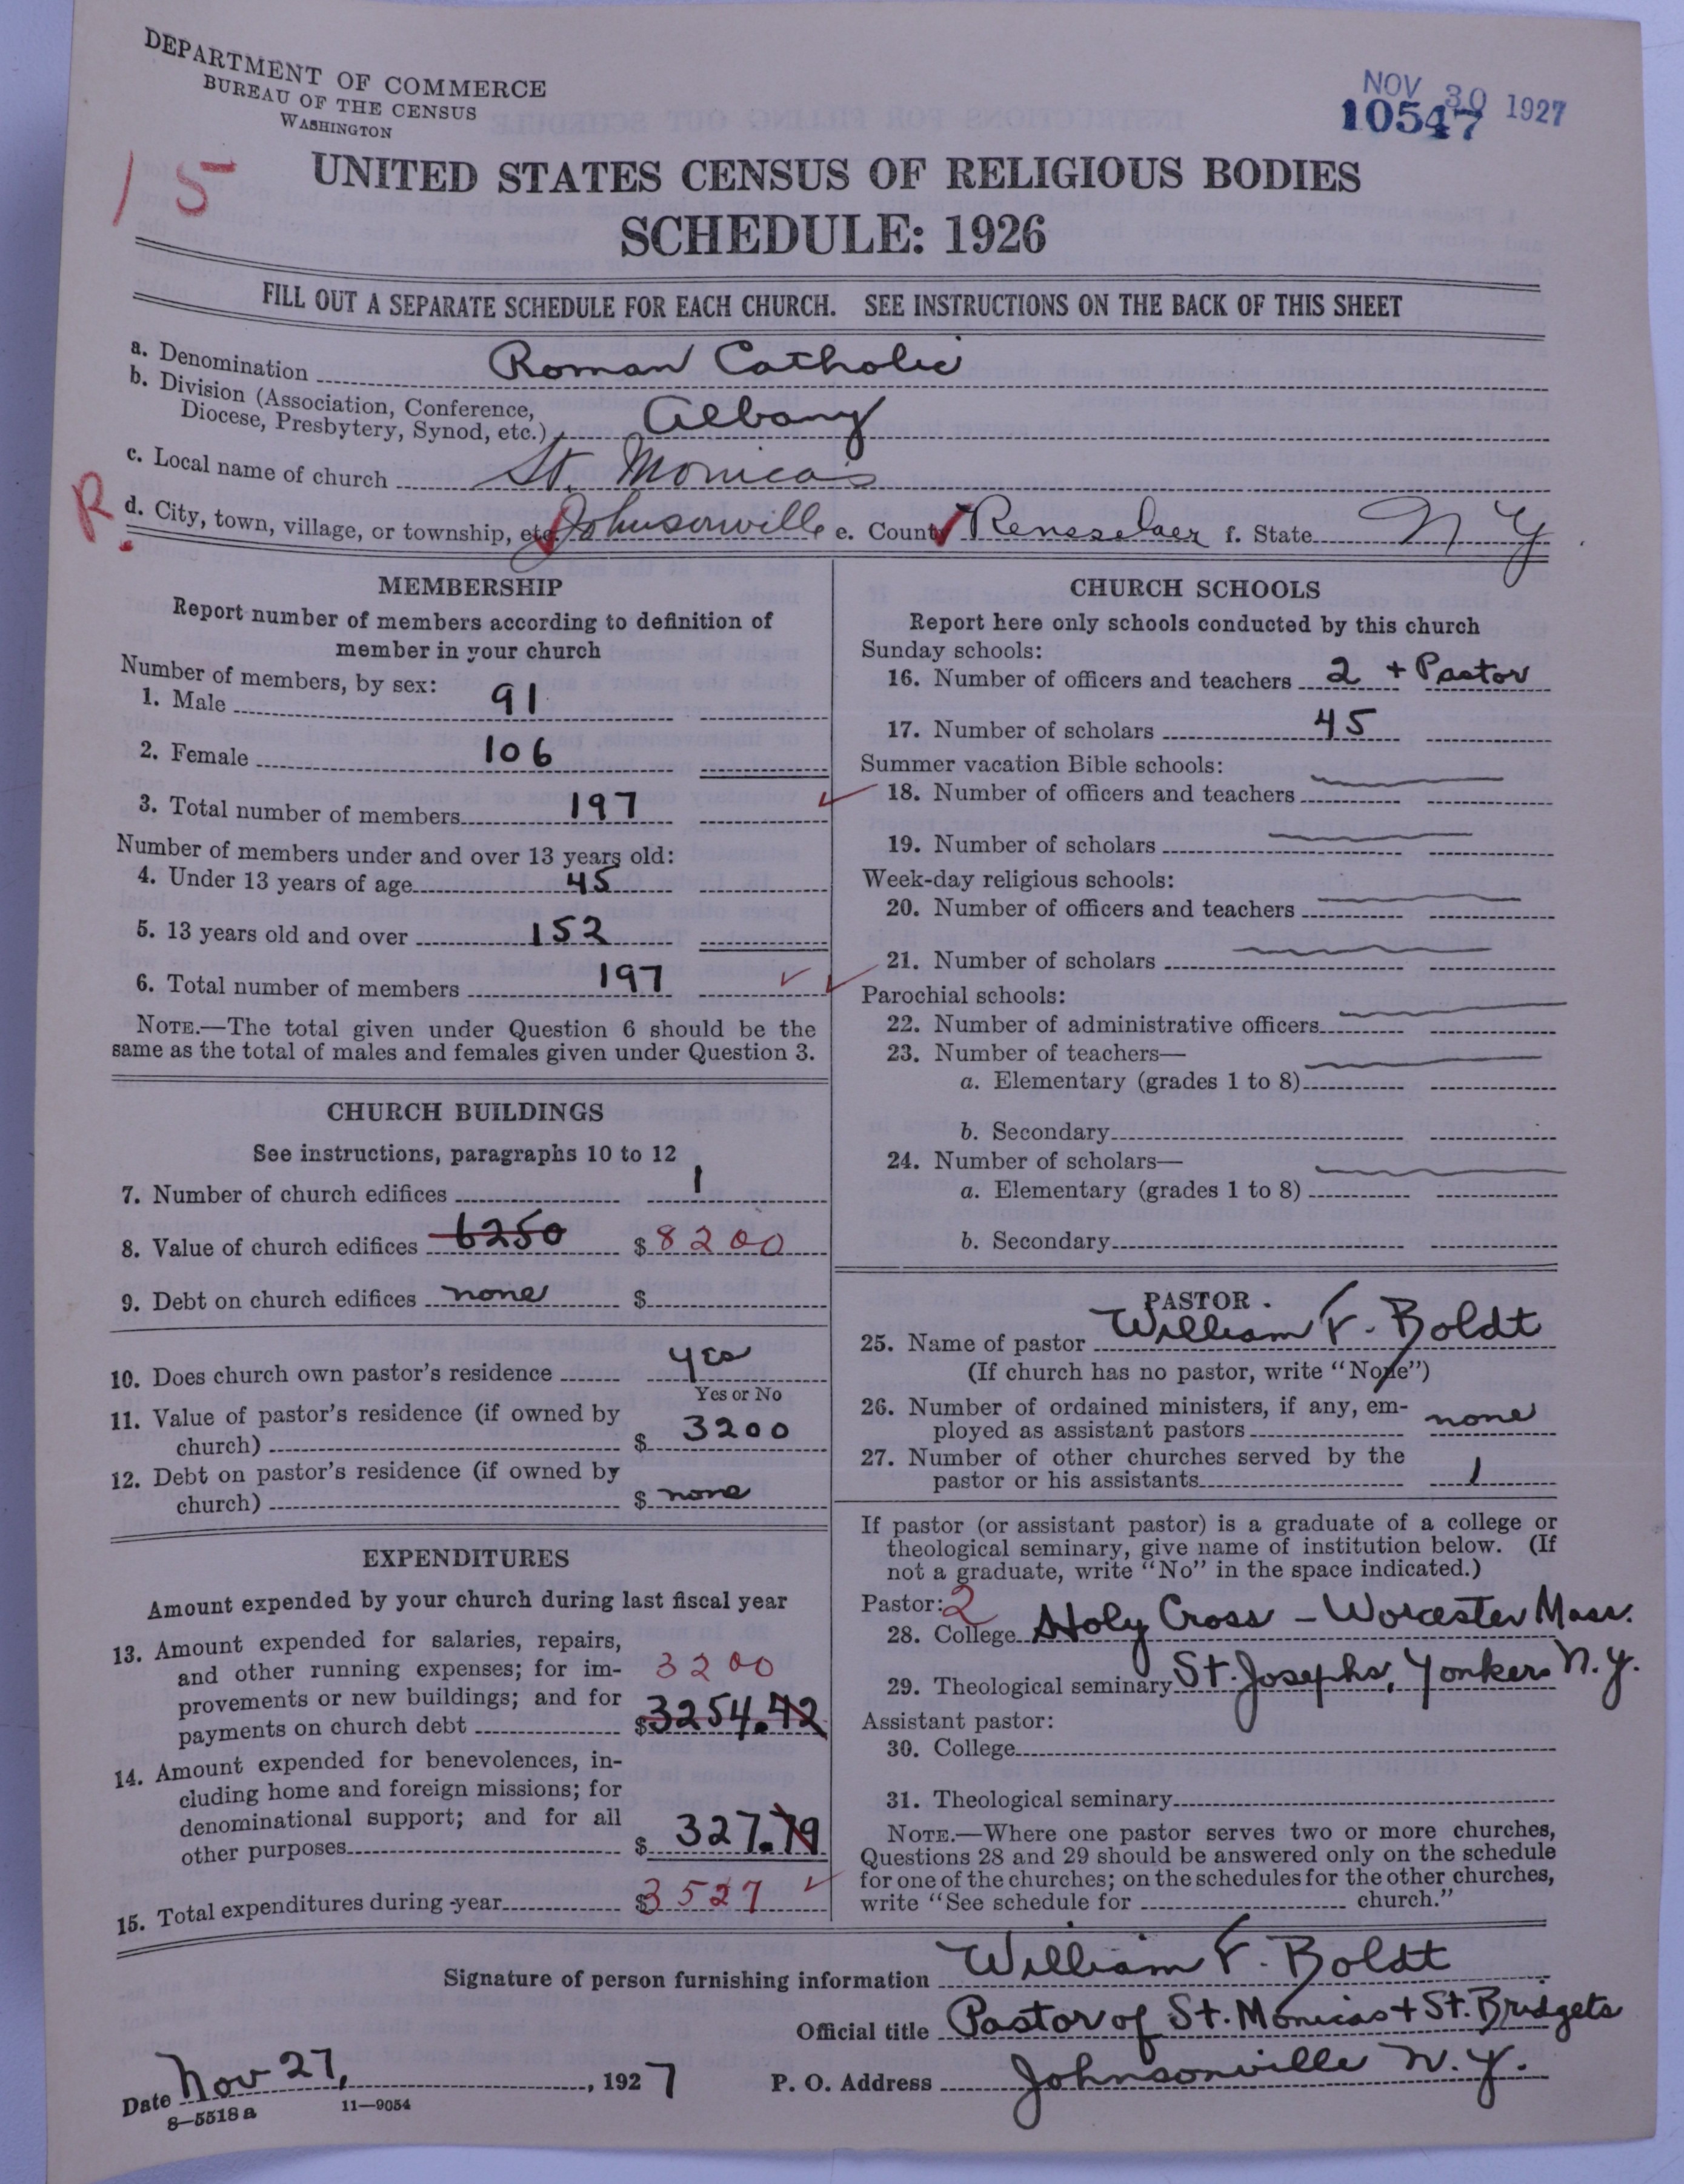 DEPARTMENT OF COMMERCE
BUREAU OF THE CENSUS
WASHINGTON
NOV 30 1927
10547
15
UNITED STATES CENSUS OF RELIGIOUS BODIES
SCHEDULE: 1926
FILL OUT A SEPARATE SCHEDULE FOR EACH CHURCH. SEE INSTRUCTIONS ON THE BACK OF THIS SHEET
a. Denomination Roman Catholic
b. Division (Association, Conference,
Diocese, Presbytery, Synod, etc.) Albany
c. Local name of church St. Monica's
R.
d. City, town, village, or township, etc. Johnsonville e. County Rensselaer f. State N Y
MEMBERSHIP
Report number of members according to definition of
member in your church
Number of members, by sex:
1. Male 91
2. Female 106
3. Total number of members 197
Number of members under and over 13 years old:
4. Under 13 years of age 45
5. 13 years old and over 152
6. Total number of members 197
NOTE.—The total given under Question 6 should be the
same as the total of males and females given under Question 3.
CHURCH BUILDINGS
See instructions, paragraphs 10 to 12
7. Number of church edifices 1
8. Value of church edifices 6250 $ 8200
9. Debt on church edifices none $
10. Does church own pastor's residence yes
Yes or No
11. Value of pastor's residence (if owned by
church) $ 3200
12. Debt on pastor's residence (if owned by
church) $ none
EXPENDITURES
Amount expended by your church during last fiscal year
13. Amount expended for salaries, repairs,
and other running expenses; for im-
3200
provements or new buildings; and for
payments on church debt $3254.42
14. Amount expended for benevolences, in-
cluding home and foreign missions; for
denominational support; and for all
other purposes $ 327.79
15. Total expenditures during year $3527
CHURCH SCHOOLS
Report here only schools conducted by this church
Sunday schools:
16. Number of officers and teachers 2 + Pastor
17. Number of scholars 45
Summer vacation Bible schools:
18. Number of officers and teachers
19. Number of scholars
Week-day religious schools:
20. Number of officers and teachers
21. Number of scholars
Parochial schools:
22. Number of administrative officers
23. Number of teachers—
a. Elementary (grades 1 to 8)
b. Secondary
24. Number of scholars—
a. Elementary (grades 1 to 8)
b. Secondary
PASTOR
25. Name of pastor William F. Boldt
(If church has no pastor, write "None")
26. Number of ordained ministers, if any, em-
ployed as assistant pastors none
27. Number of other churches served by the
pastor or his assistants 1
If pastor (or assistant pastor) is a graduate of a college or
theological seminary, give name of institution below. (If
not a graduate, write "No" in the space indicated.)
Pastor: 2
28. College Holy Cross - Worcester Mass.
29. Theological seminary St. Josephs, Yonkers N.Y.
Assistant pastor:
30. College
31. Theological seminary
NOTE.—Where one pastor serves two or more churches,
Questions 28 and 29 should be answered only on the schedule
for one of the churches; on the schedules for the other churches,
write "See schedule for church."
Signature of person furnishing information William F. Boldt
Official title Pastor of St. Monicas + St. Bridgets
Date Nov 27, 1927 P. O. Address Johnsonville N.Y.
8—5518 a 11—9054